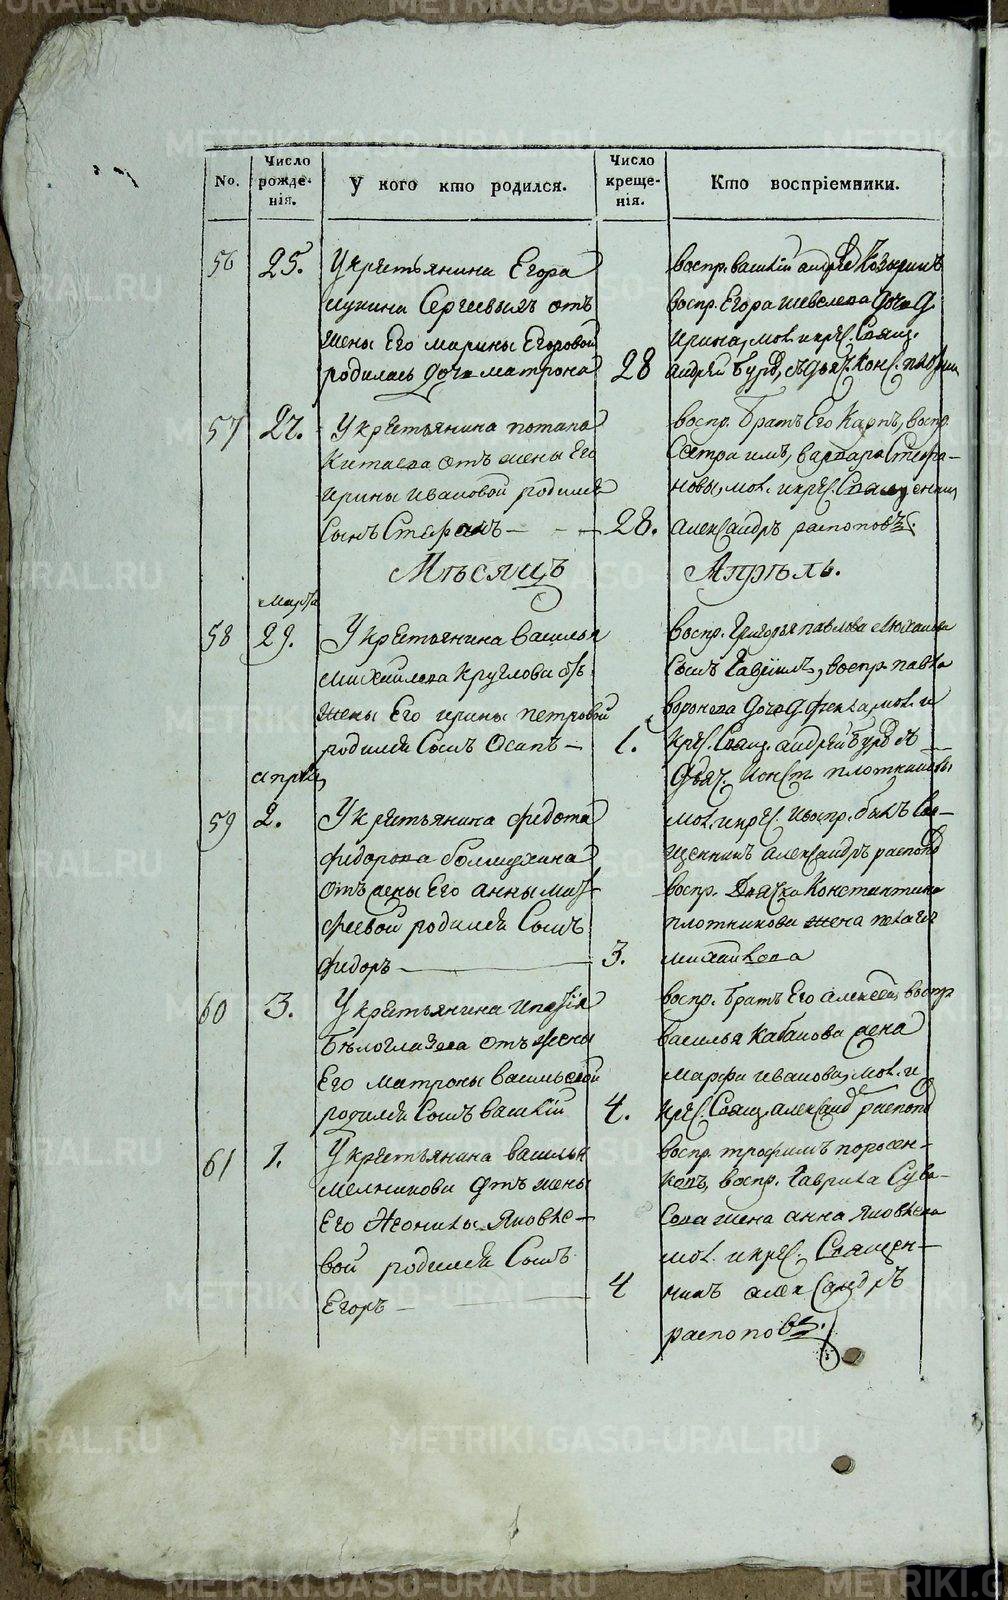 No.
Число рожде-нія.
У кого кто родился.
Число креще-нія.
Кто воспріемники.
56 25. У крестьянина Егора
Сергеевыхъ отъ
жены Его марины Егоровой
родилась дочь матрона 28
воспр. василій андрея
воспр. Егора шевелева дочь д.
ирина, мол. и крес. Свящ.
андрей Бурд
57 27. У крестьянина потапа
Китаева отъ жены Его
ирины ивановой родился
Сынъ Стефанъ 28.
воспр. братъ Его Карпъ, воспр.
Сестра имъ, варвара Стефа-
новы, мол. и крес. Священникъ
Александръ распоповъ.
Мѣсяцъ Апрѣль.
марта
58 29. У крестьянина василья
михайлова Круглова отъ
жены Его ирины петровой
родился Сынъ Осипъ 1.
воспр. Григорья павлова
Сынъ Гавріилъ, воспр. павла
воронова дочь д. фекла, мол. и
крес. Свящ. андрей Бурд
дьяч. Конст. плотниковы
апрѣля
59 2. У крестьянина федота
федорова
отъ жены Его анны мат-
феевой родился Сынъ
федоръ 3.
мол. и крес. и воспр. былъ Свя-
щенникъ александръ распопо
воспр. Дьячка Константина
плотникова жена пелагея
михайлова
60 3. У крестьянина
Бѣлоглазова отъ жены
Его матроны васильевой
родился Сынъ василій 4.
воспр. братъ Его алексей, воспр.
василья Кабанова жена
марфа иванова, мол. и
крес. Свящ. александ распопо
61 1. У крестьянина василья
мелникова отъ жены
Его Неонилы Яковле-
вой родился Сынъ
Егоръ 4
воспр. трофимъ поросен-
ковъ, воспр. Гаврила Суво-
рова жена анна Яковлева
мол. и крес. Священ-
никъ александръ
распоповъ.
METRIKI.GASO-URAL.RU